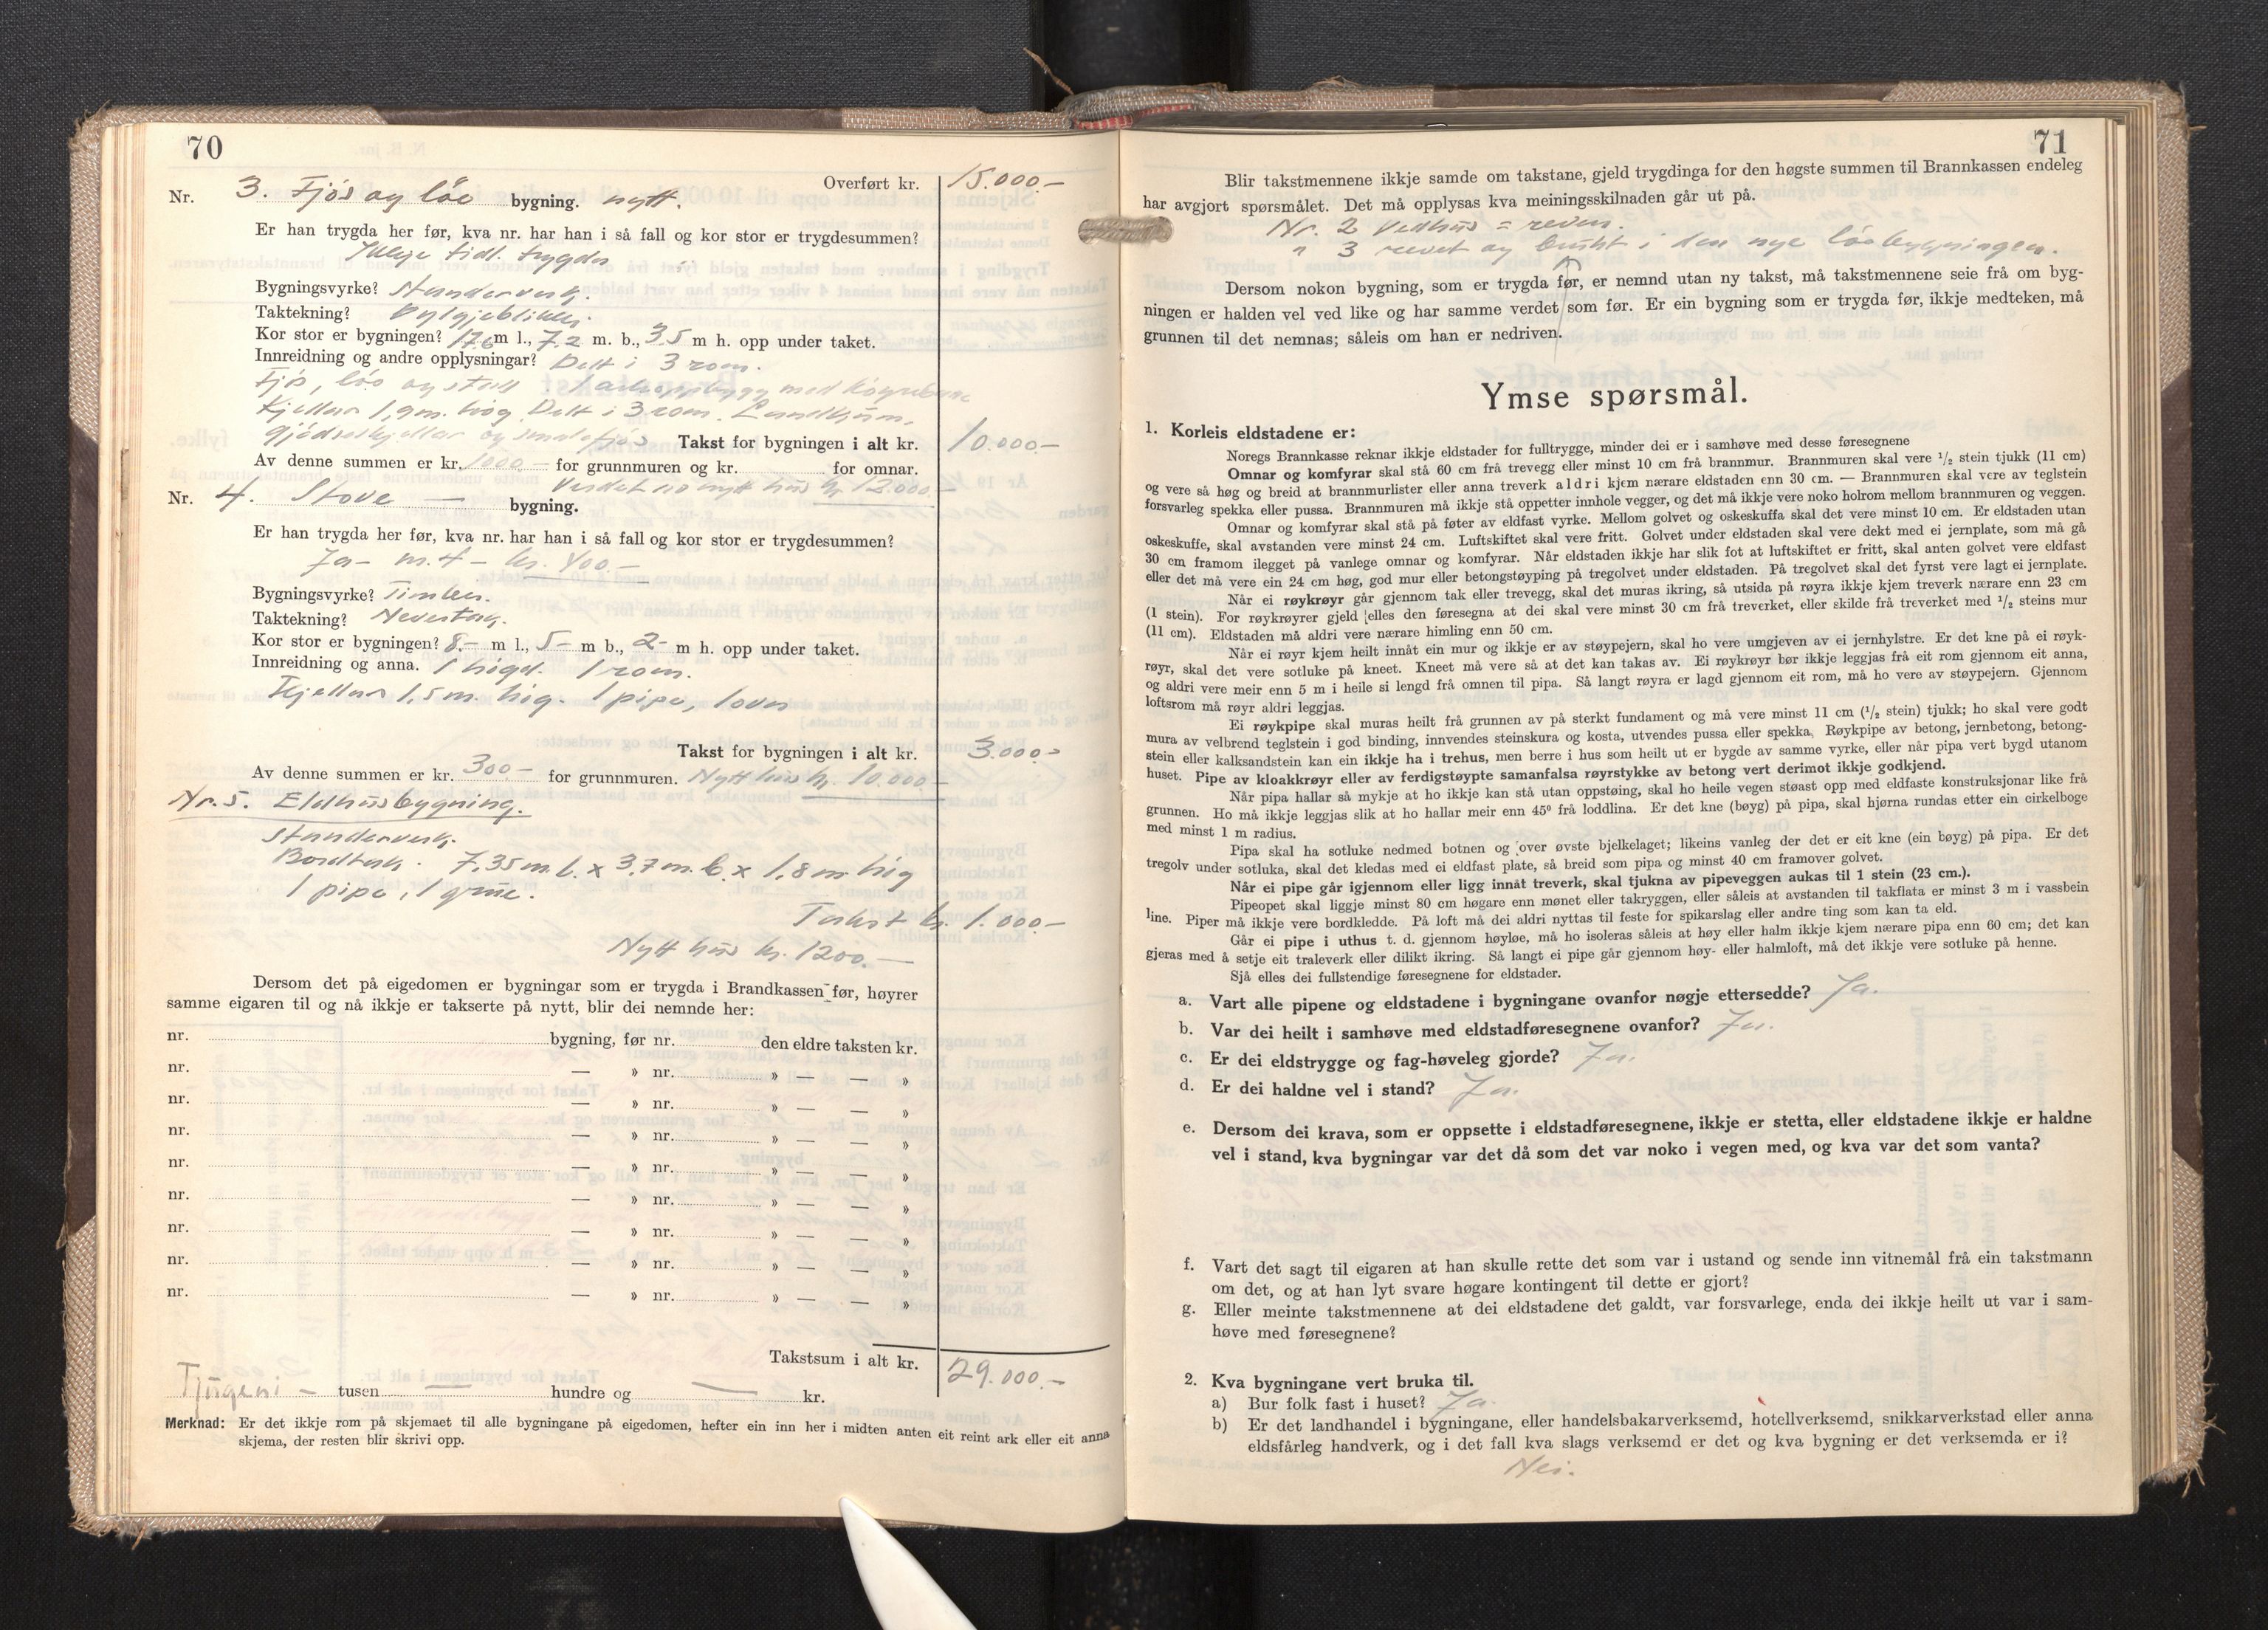 70
Overført kr. 15.000.-
Nr. 3. Fjós og lóe bygning. nytt.
Er han trygda her før, kva nr. har han i så fall og kor stor er trygdesummen?
Ikkje tidl. trygda
Bygningsvyrke? Stenderverk.
Taktekning? Bylgjeblikk.
Kor stor er bygningen? 17,6 m l., 7,2 m. b., 3,5 m h. opp under taket.
Innreidning og andre opplysningar? Delt i 3 rom.
Fjós, lóe og stall
Kjellar 1,9 m. hög. Delt i 3 rom.
gjódseskjellar og smalefjós Takst for bygningen i alt kr. 10.000.-
Av denne summen er kr. 1000 - for grunnmuren og kr. for omnar.
Verdet som nytt hus kr. 12.000.-
Nr. 4. Stove — bygning.
Er han trygda her før, kva nr. har han i så fall og kor stor er trygdesummen?
Ja - nr. 4 - kr. 400.-
Bygningsvyrke? Timber.
Taktekning? Nevertak.
Kor stor er bygningen? 8.- m l., 5- m b., 2- m h. opp under taket.
Innreidning og anna. 1 högd. 1 rom.
Kjellar 1,5 m. hög. 1 pipe, 1 ovn
Takst for bygningen i alt kr. 3.000.-
Av denne summen er kr. 300.- for grunnmuren. Nytt hus kr. 10.000 -
Nr. 5. Eldhusbygning.
Stenderverk.
Bordtak. 7,35 m. l. x 3,7 m. b. x 1,8 m. hög
1 pipe, 1 grue.
Takst kr. 1.000.-
Nytt hus kr. 1200.-
Dersom det på eigedomen er bygningar som er trygda i Brandkassen før, høyrer
samme eigaren til og nå ikkje er takserte på nytt, blir dei nemnde her:
nr. bygning, før nr. den eldre taksten kr.
nr. — » nr. » — — »
nr. — » nr. » — — »
nr. — » nr. » — — »
nr. — » nr. » — — »
nr. — » nr. » — — »
nr. — » nr. » — — »
nr. — » nr. » — — »
nr. — » nr. » — — »
Takstsum i alt kr. 29.000.-
Tjugeni - tusen — hundre og — kr.
Merknad: Er det ikkje rom på skjemaet til alle bygningane på eigedomen, hefter ein inn her i midten anten eit reint ark eller eit anna
skjema, der resten blir skrivi opp.
71
Blir takstmennene ikkje samde om takstane, gjeld trygdinga for den høgste summen til Brannkassen endeleg
har avgjort spørsmålet. Det må opplysas kva meiningsskilnaden går ut på.
Nr. 2 Vedhus = reven.
" 3 revet og brukt i den nye lóebygningen.
Dersom nokon bygning, som er trygda før, er nemnd utan ny takst, må takstmennene seie frå om byg-
ningen er halden vel ved like og har samme verdet som før. Er ein bygning som er trygda før, ikkje medteken, må
grunnen til det nemnas; såleis om han er nedriven.
Ymse spørsmål.
1. Korleis eldstadene er:
Noregs Brannkasse reknar ikkje eldstader for fulltrygge, minder dei er i samhøve med desse føresegnene
Omnar og komfyrar skal stå 60 cm frå trevegg eller minst 10 cm frå brannmur. Brannmuren skal vere 1/2 stein tjukk (11 cm)
og vere så høg og breid at brannmurlister eller anna treverk aldri kjem nærare eldstaden enn 30 cm. — Brannmuren skal vere av teglstein
forsvarleg spekka eller pussa. Brannmuren må ikkje stå oppetter innhole vegger, og det må ikkje vere noko holrom mellom brannmuren og veggen.
Omnar og komfyrar skal stå på føter av eldfast vyrke. Mellom golvet og oskeskuffa skal det vere minst 10 cm. Er eldstaden utan
oskeskuffe, skal avstanden vere minst 24 cm. Luftskiftet skal vere fritt. Golvet under eldstaden skal vere dekt med ei jernplate, som må gå
30 cm framom ilegget på vanlege omnar og komfyrar. Når eldstaden ikkje har slik fot at luftskiftet er fritt, skal anten golvet vere eldfast
eller det må vere ein 24 cm høg, god mur eller betongstøyping på tregolvet under eldstaden. På tregolvet skal det fyrst vere lagt ei jernplate.
Når ei røykrøyr går gjennom tak eller trevegg, skal det muras ikring, så utsida på røyra ikkje kjem treverk nærare enn 23 cm
(1 stein). For røykrøyrer gjeld elles den føresegna at dei skal vere minst 30 cm frå treverket, eller skilde frå treverket med 1/2 steins mur
(11 cm). Eldstaden må aldri vere nærare himling enn 50 cm.
Når ei røyr kjem heilt innåt ein mur og ikkje er av støypejern, skal ho vere umgjeven av ei jernhylstre. Er det kne på ei røyk-
røyr, skal det vere sotluke på kneet. Kneet må vere så at det kan takas av. Ei røykrøyr bør ikkje leggjas frå eit rom gjennom eit anna,
og aldri vere meir enn 5 m i heile si lengd frå omnen til pipa. Så langt røyra er lagd gjennom eit rom, må ho vere av støypejern. Gjennom
loftsrom må røyr aldri leggjas.
Ei røykpipe skal muras heilt frå grunnen av på sterkt fundament og må vere minst 11 cm (1/2 stein) tjukk; ho skal vere godt
mura av velbrend teglstein i god binding, innvendes steinskura og kosta, utvendes pussa eller spekka. Røykpipe av betong, jernbetong, betong-
stein eller kalksandstein kan ein ikkje ha i trehus, men berre i hus som heilt ut er bygde av samme vyrke, eller når pipa vert bygd utanom
huset. Pipe av kloakkrøyr eller av ferdigstøypte samanfalsa røyrstykke av betong vert derimot ikkje godkjend.
Når pipa hallar så mykje at ho ikkje kan stå utan oppstøing, skal ho heile vegen støast opp med eldfaste konstruksjonar like frå
grunnen. Ho må ikkje leggjas slik at ho hallar meir enn 45° frå loddlina. Er det kne (bøyg) på pipa, skal hjørna rundas etter ein cirkelboge
med minst 1 m radius.
Pipa skal ha sotluke nedmed botnen og over øvste bjelkelaget; likeins vanleg der det er eit kne (ein bøyg) på pipa. Er det
tregolv under sotluka, skal det kledas med ei eldfast plate, så breid som pipa og minst 40 cm framover golvet.
Når ei pipe går igjennom eller ligg innåt treverk, skal tjukna av pipeveggen aukas til 1 stein (23 cm.).
Pipeopet skal liggje minst 80 cm høgare enn mønet eller takryggen, eller såleis at avstanden til takflata er minst 3 m i vassbein
line. Piper må ikkje vere bordkledde. På loft må dei aldri nyttas til feste for spikarslag eller andre ting som kan ta eld.
Går ei pipe i uthus t. d. gjennom høyløe, må ho isoleras såleis at høy eller halm ikkje kjem nærare pipa enn 60 cm; det kan
gjeras med å setje eit traleverk eller dilikt ikring. Så langt ei pipe går gjennom høy- eller halmloft, må det ikkje vere sotluke på henne.
Sjå elles dei fullstendige føresegnene for eldstader.
a. Vart alle pipene og eldstadene i bygningane ovanfor nøgje ettersedde? Ja.
b. Var dei heilt i samhøve med eldstadføresegnene ovanfor? Ja.
c. Er dei eldstrygge og fag-høveleg gjorde? Ja.
d. Er dei haldne vel i stand? Ja.
e. Dersom dei krava, som er oppsette i eldstadføresegnene, ikkje er stetta, eller eldstadene ikkje er haldne
vel i stand, kva bygningar var det då som det var noko i vegen med, og kva var det som vanta?
f. Vart det sagt til eigaren at han skulle rette det som var i ustand og sende inn vitnemål frå ein takstmann
om det, og at han lyt svare høgare kontingent til dette er gjort?
g. Eller meinte takstmennene at dei eldstadene det galdt, var forsvarlege, enda dei ikkje heilt ut var i sam-
høve med føresegnene?
2. Kva bygningane vert bruka til.
a) Bur folk fast i huset? Ja.
b) Er det landhandel i bygningane, eller handelsbakarverksemd, hotellverksemd, snikkarverkstad eller anna
eldsfårleg handverk, og i det fall kva slags verksemd er det og kva bygning er det verksemda er i?
Nei.